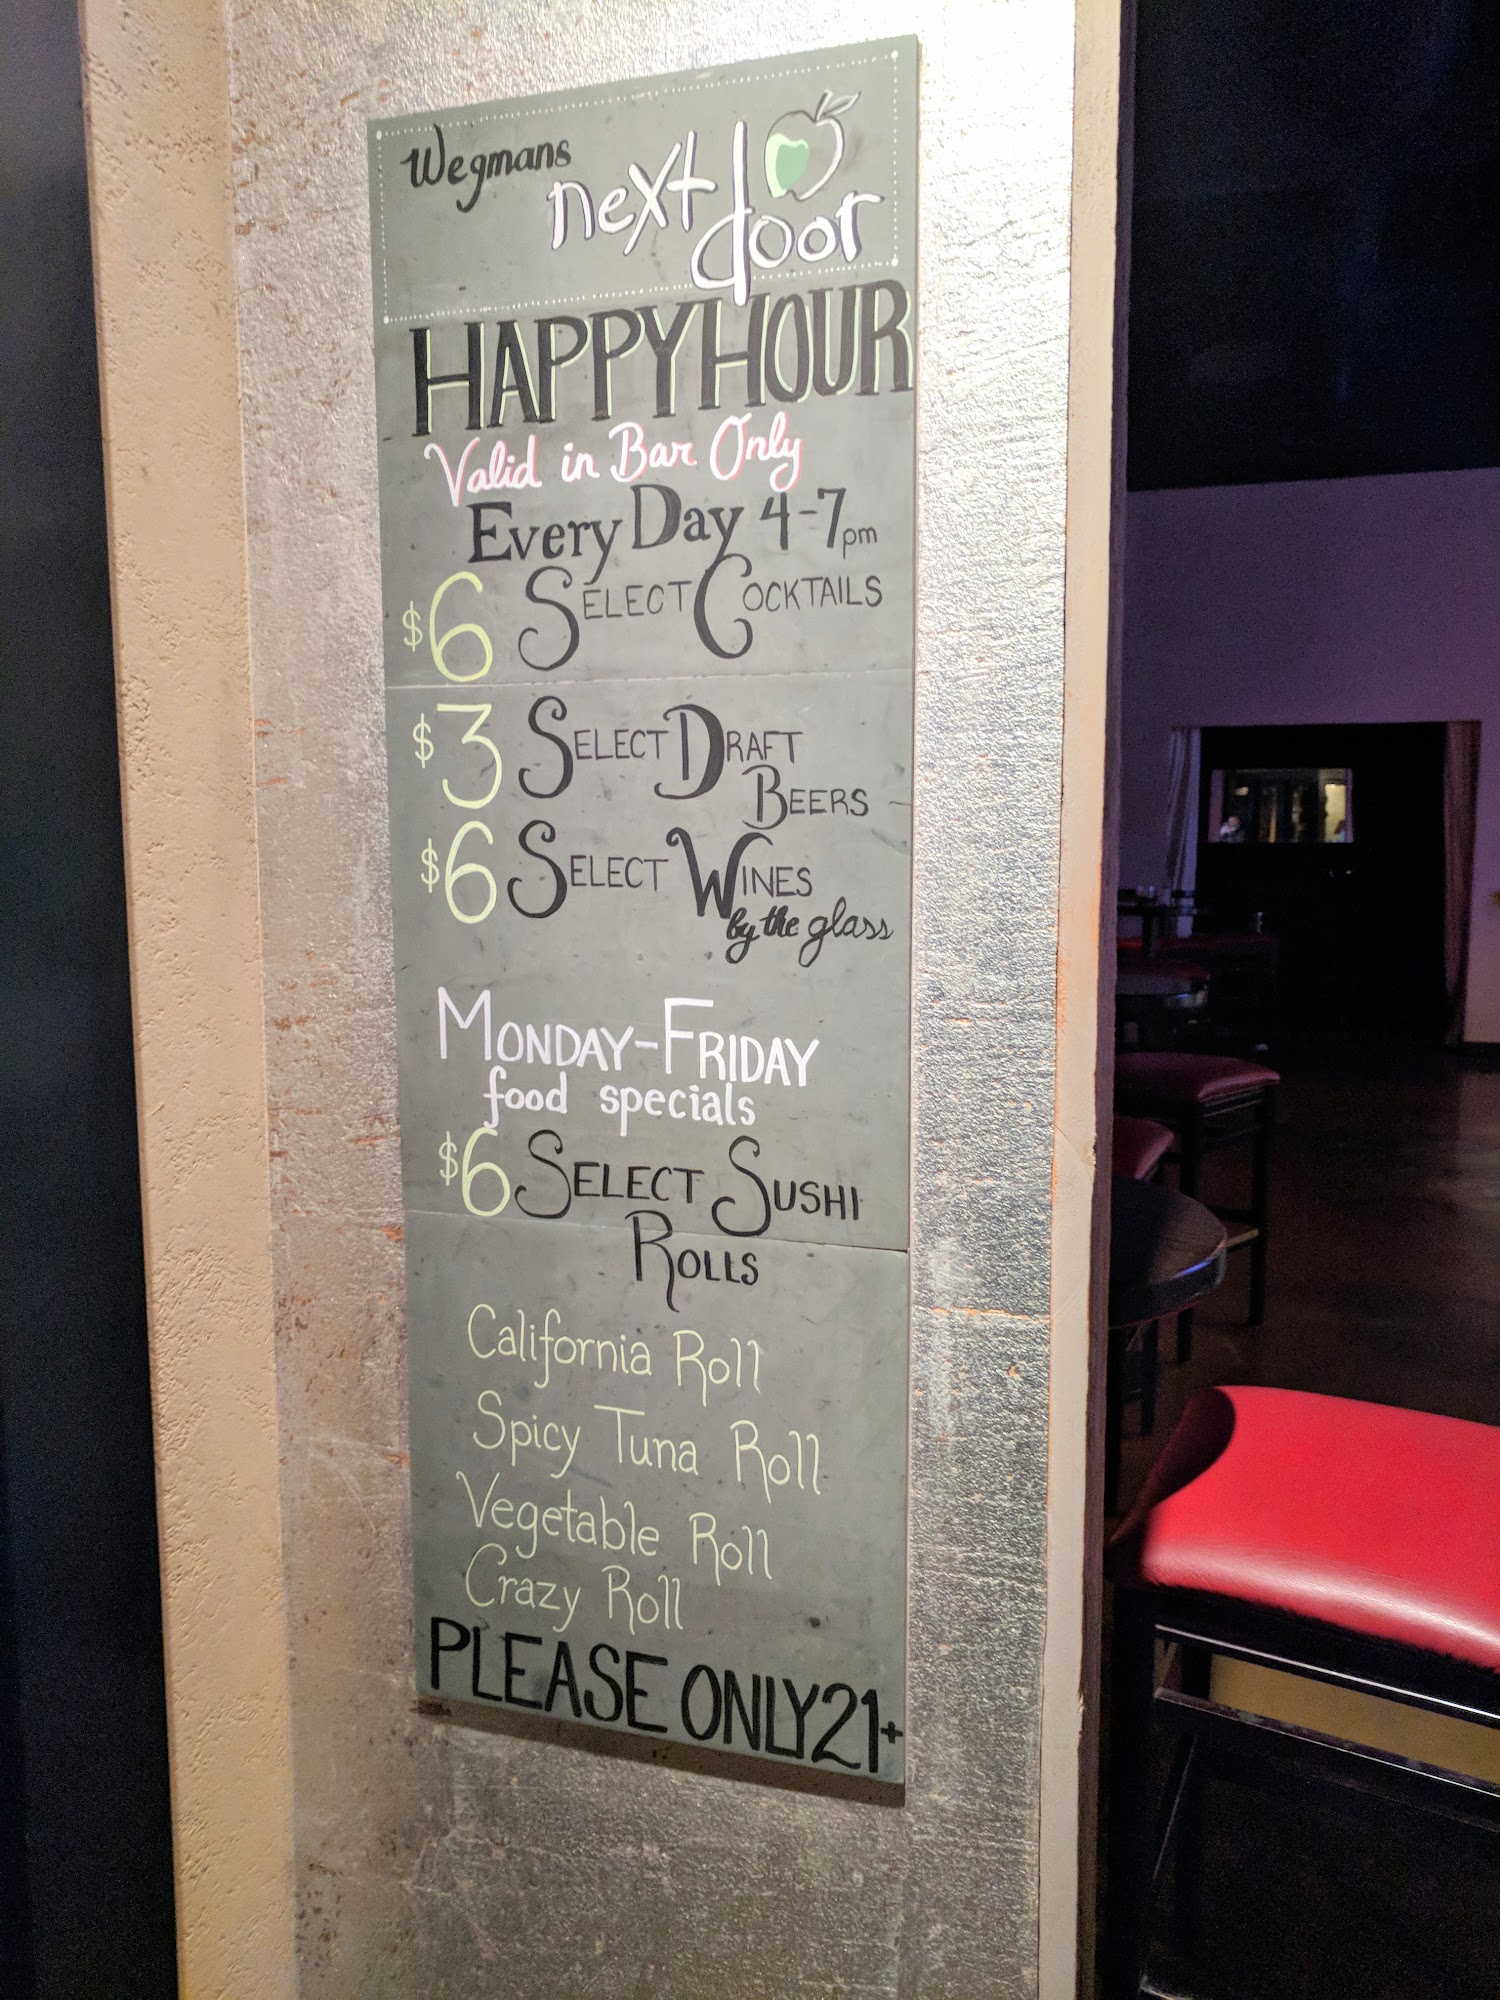 Wegmans
next door
HAPPY HOUR
Valid in Bar Only
Every Day 4-7pm
$6 SELECT COCKTAILS
$3 SELECT DRAFT
BEERS
$6 SELECT WINES
by the glass
MONDAY-FRIDAY
food specials
$6 SELECT SUSHI
ROLLS
California Roll
Spicy Tuna Roll
Vegetable Roll
Crazy Roll
PLEASE ONLY 21+